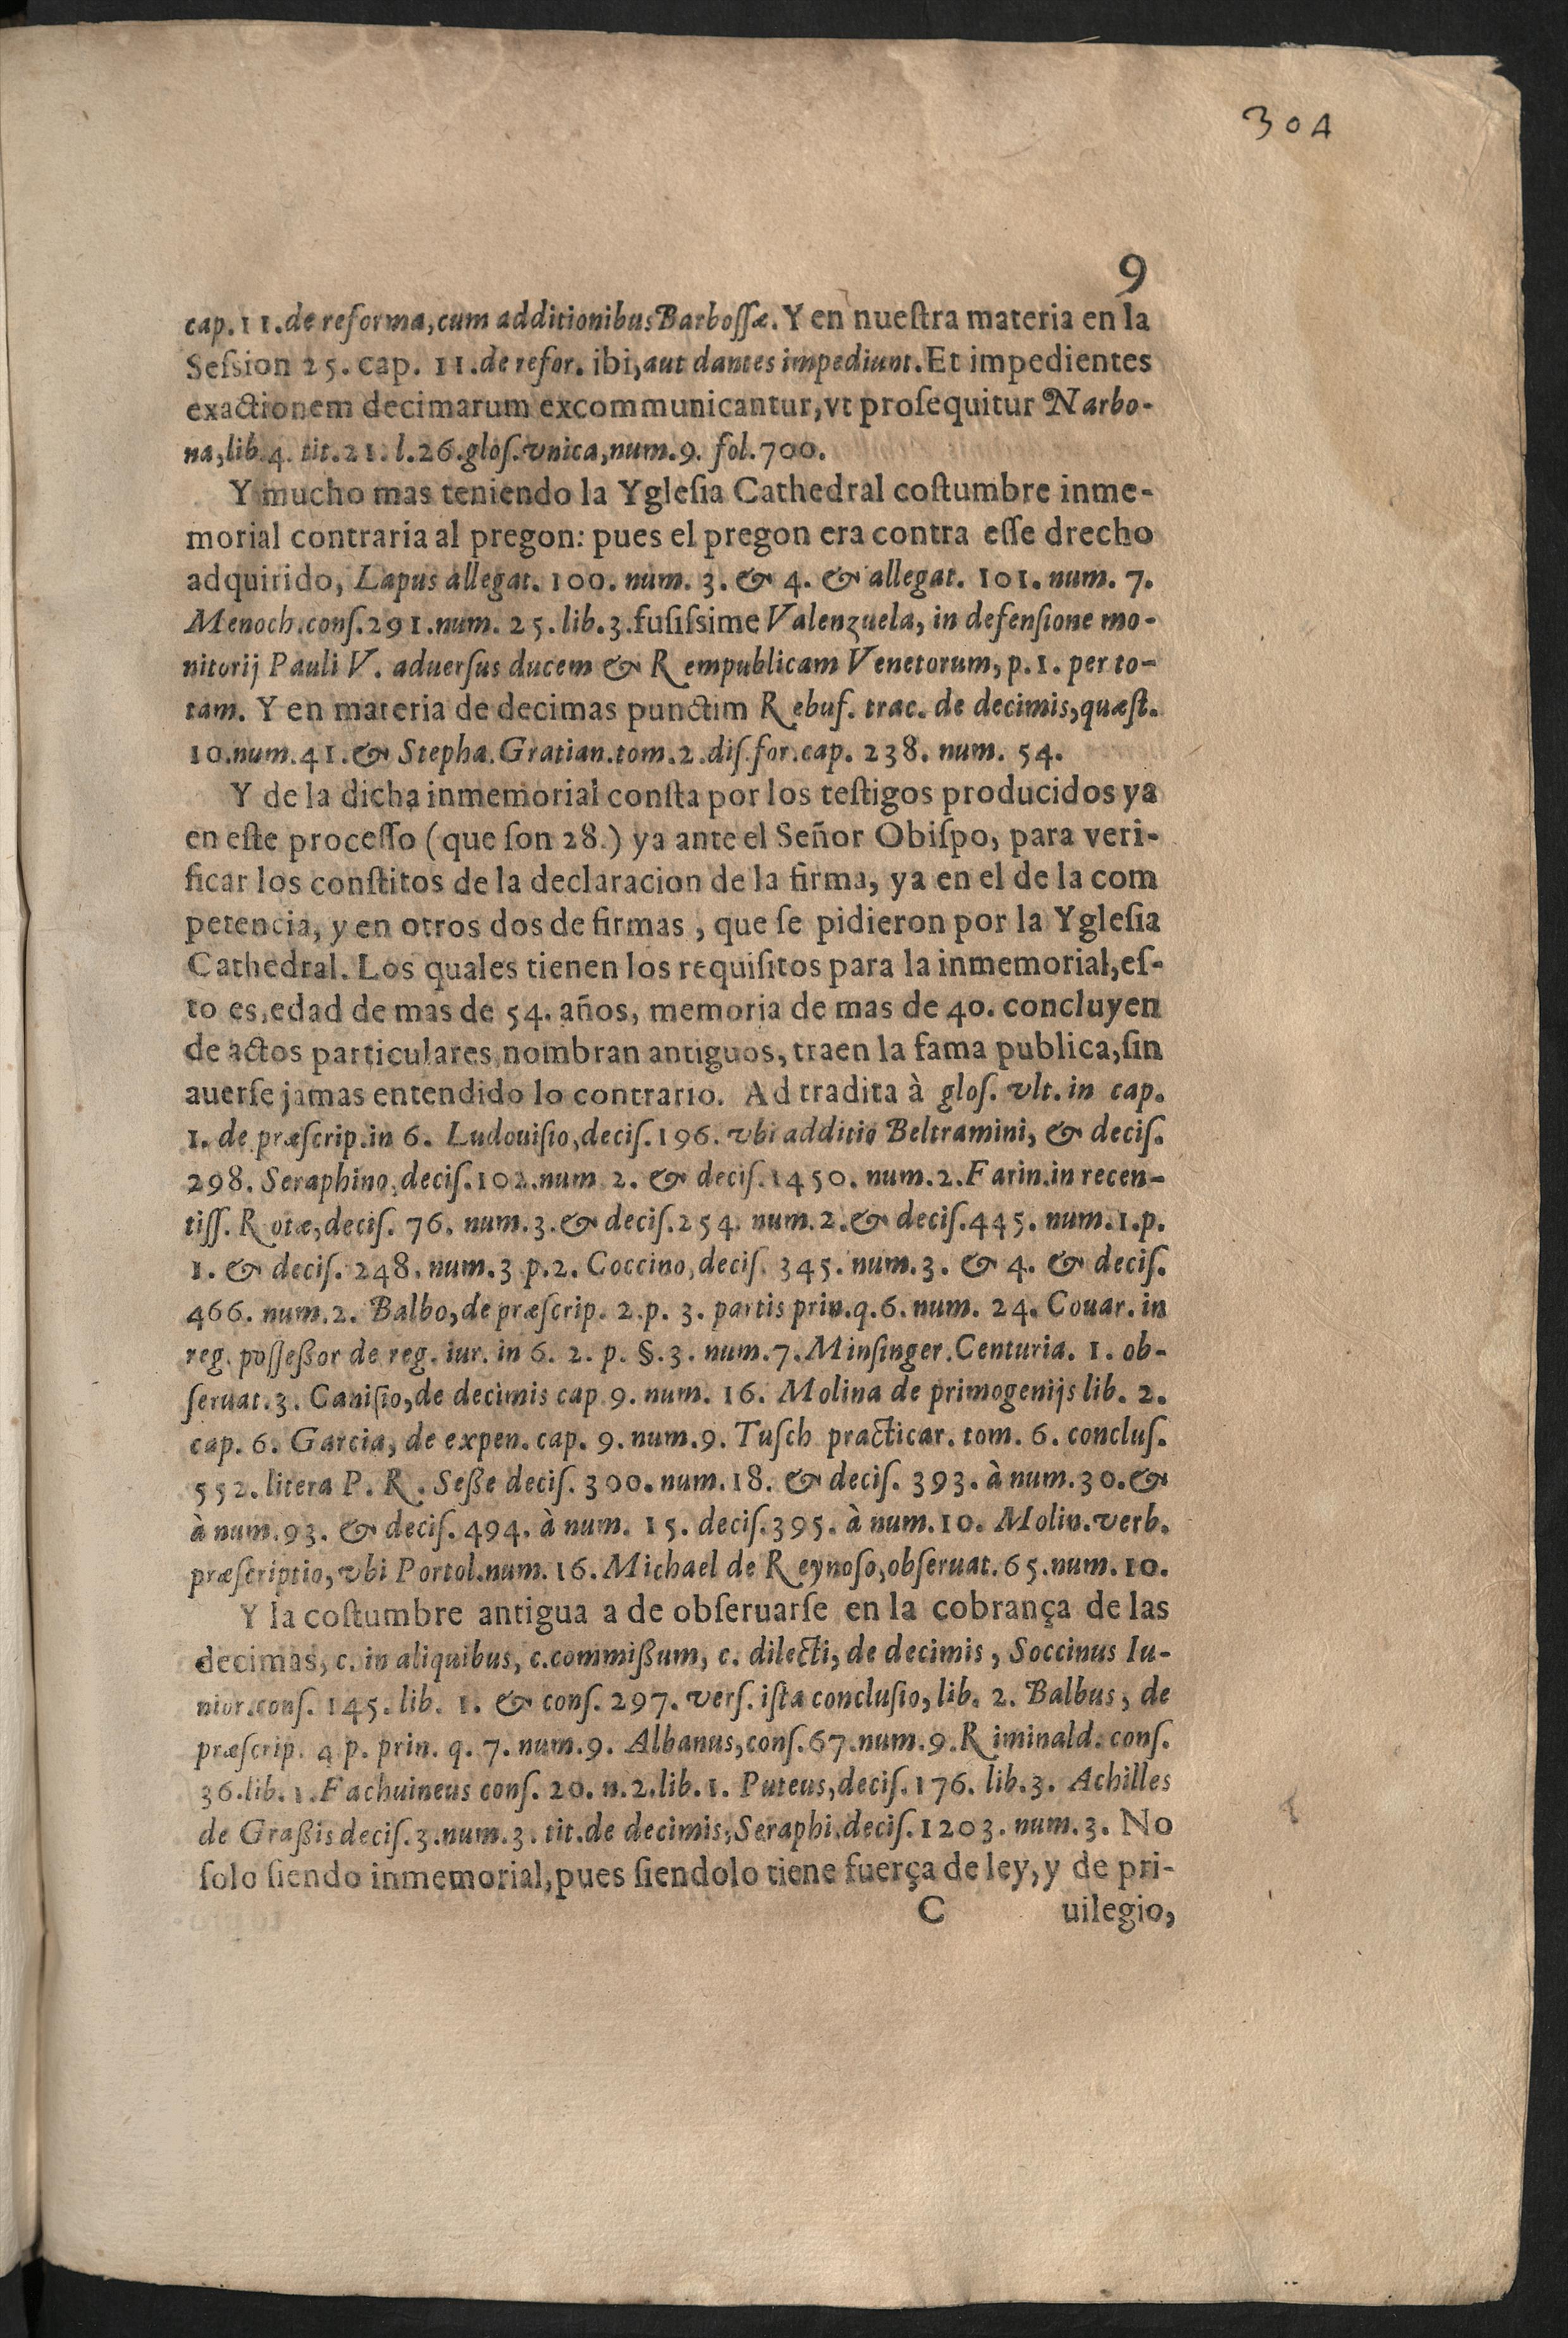 304
9
cap.11.de reforma,cum additionibus Barboſſæ. Y en nueſtra materia en la
Seſsion 25. cap. 11.de refor. ibi,aut dantes impediunt.Et impedientes
exactionem decimarum excommunicantur,vt proſequitur Narbo-
na,lib.4. tit.21. l.26.gloſ.vnica,num.9. fol.700.
Y mucho mas teniendo la Ygleſia Cathedral coſtumbre inme-
morial contraria al pregon: pues el pregon era contra eſſe drecho
adquirido, Lapus allegat. 100. num. 3. & 4. & allegat. 101. num. 7.
Menoch.conſ.291.num. 25.lib.3.fuſiſsime Valenzuela, in defenſione mo-
nitorij Pauli V. aduerſus ducem & Rempublicam Venetorum, p.1. per to-
tam. Y en materia de decimas punctim Rebuf. trac. de decimis,quæſt.
10.num.41.& Stepha.Gratian.tom.2.diſ.for.cap. 238. num. 54.
Y de la dicha inmemorial conſta por los teſtigos producidos ya
en eſte proceſſo (que ſon 28.) ya ante el Señor Obiſpo, para veri-
ficar los conſtitos de la declaracion de la firma, ya en el de la com
petencia, y en otros dos de firmas , que ſe pidieron por la Ygleſia
Cathedral. Los quales tienen los requiſitos para la inmemorial,eſ-
to es,edad de mas de 54. años, memoria de mas de 40. concluyen
de actos particulares,nombran antiguos, traen la fama publica,ſin
auerſe jamas entendido lo contrario. Ad tradita à gloſ. vlt. in cap.
1. de præſcrip.in 6. Ludouiſio,deciſ.196. vbi additio Beltramini, & deciſ.
298. Seraphino,deciſ.102.num 2. & deciſ.1450. num.2.Farin.in recen-
tiſſ. Rotæ,deciſ. 76. num.3.& deciſ.254. num.2.& deciſ.445. num.1.p.
1. & deciſ. 248. num.3 p.2. Coccino,deciſ. 345. num.3. & 4. & deciſ.
466. num.2. Balbo,de præſcrip. 2.p. 3. partis prin.q.6. num. 24. Couar. in
reg. poſſeßor de reg. iur. in 6. 2. p. §.3. num.7.Minſinger.Centuria. 1. ob-
ſeruat.3. Caniſio,de decimis cap 9. num. 16. Molina de primogenijs lib. 2.
cap. 6. Garcia, de expen. cap. 9. num.9. Tuſch practicar. tom. 6. concluſ.
552. litera P. R. Seße deciſ. 300. num.18. & deciſ. 393. à num.30.&
à num.93. & deciſ. 494. à num. 15. deciſ.395. à num.10. Molin.verb.
præſcriptio, vbi Portol.num. 16.Michael de Reynoſo,obſeruat.65.num.10.
Y la coſtumbre antigua a de obſeruarſe en la cobrança de las
decimas, c. in aliquibus, c.commißum, c. dilecti, de decimis , Soccinus Iu-
nior.conſ. 145. lib. 1. & conſ. 297. verſ. iſta concluſio, lib. 2. Balbus, de
præſcrip. 4 p. prin. q. 7. num.9. Albanus,conſ.67.num.9.Riminald. conſ.
36.lib. 1.Fachuineus conſ. 20. n.2.lib.1. Puteus,deciſ.176. lib.3. Achilles
de Graßis deciſ.3.num.3. tit.de decimis,Seraphi.deciſ.1203. num.3. No
ſolo ſiendo inmemorial,pues ſiendolo tiene fuerça de ley, y de pri-
C uilegio,